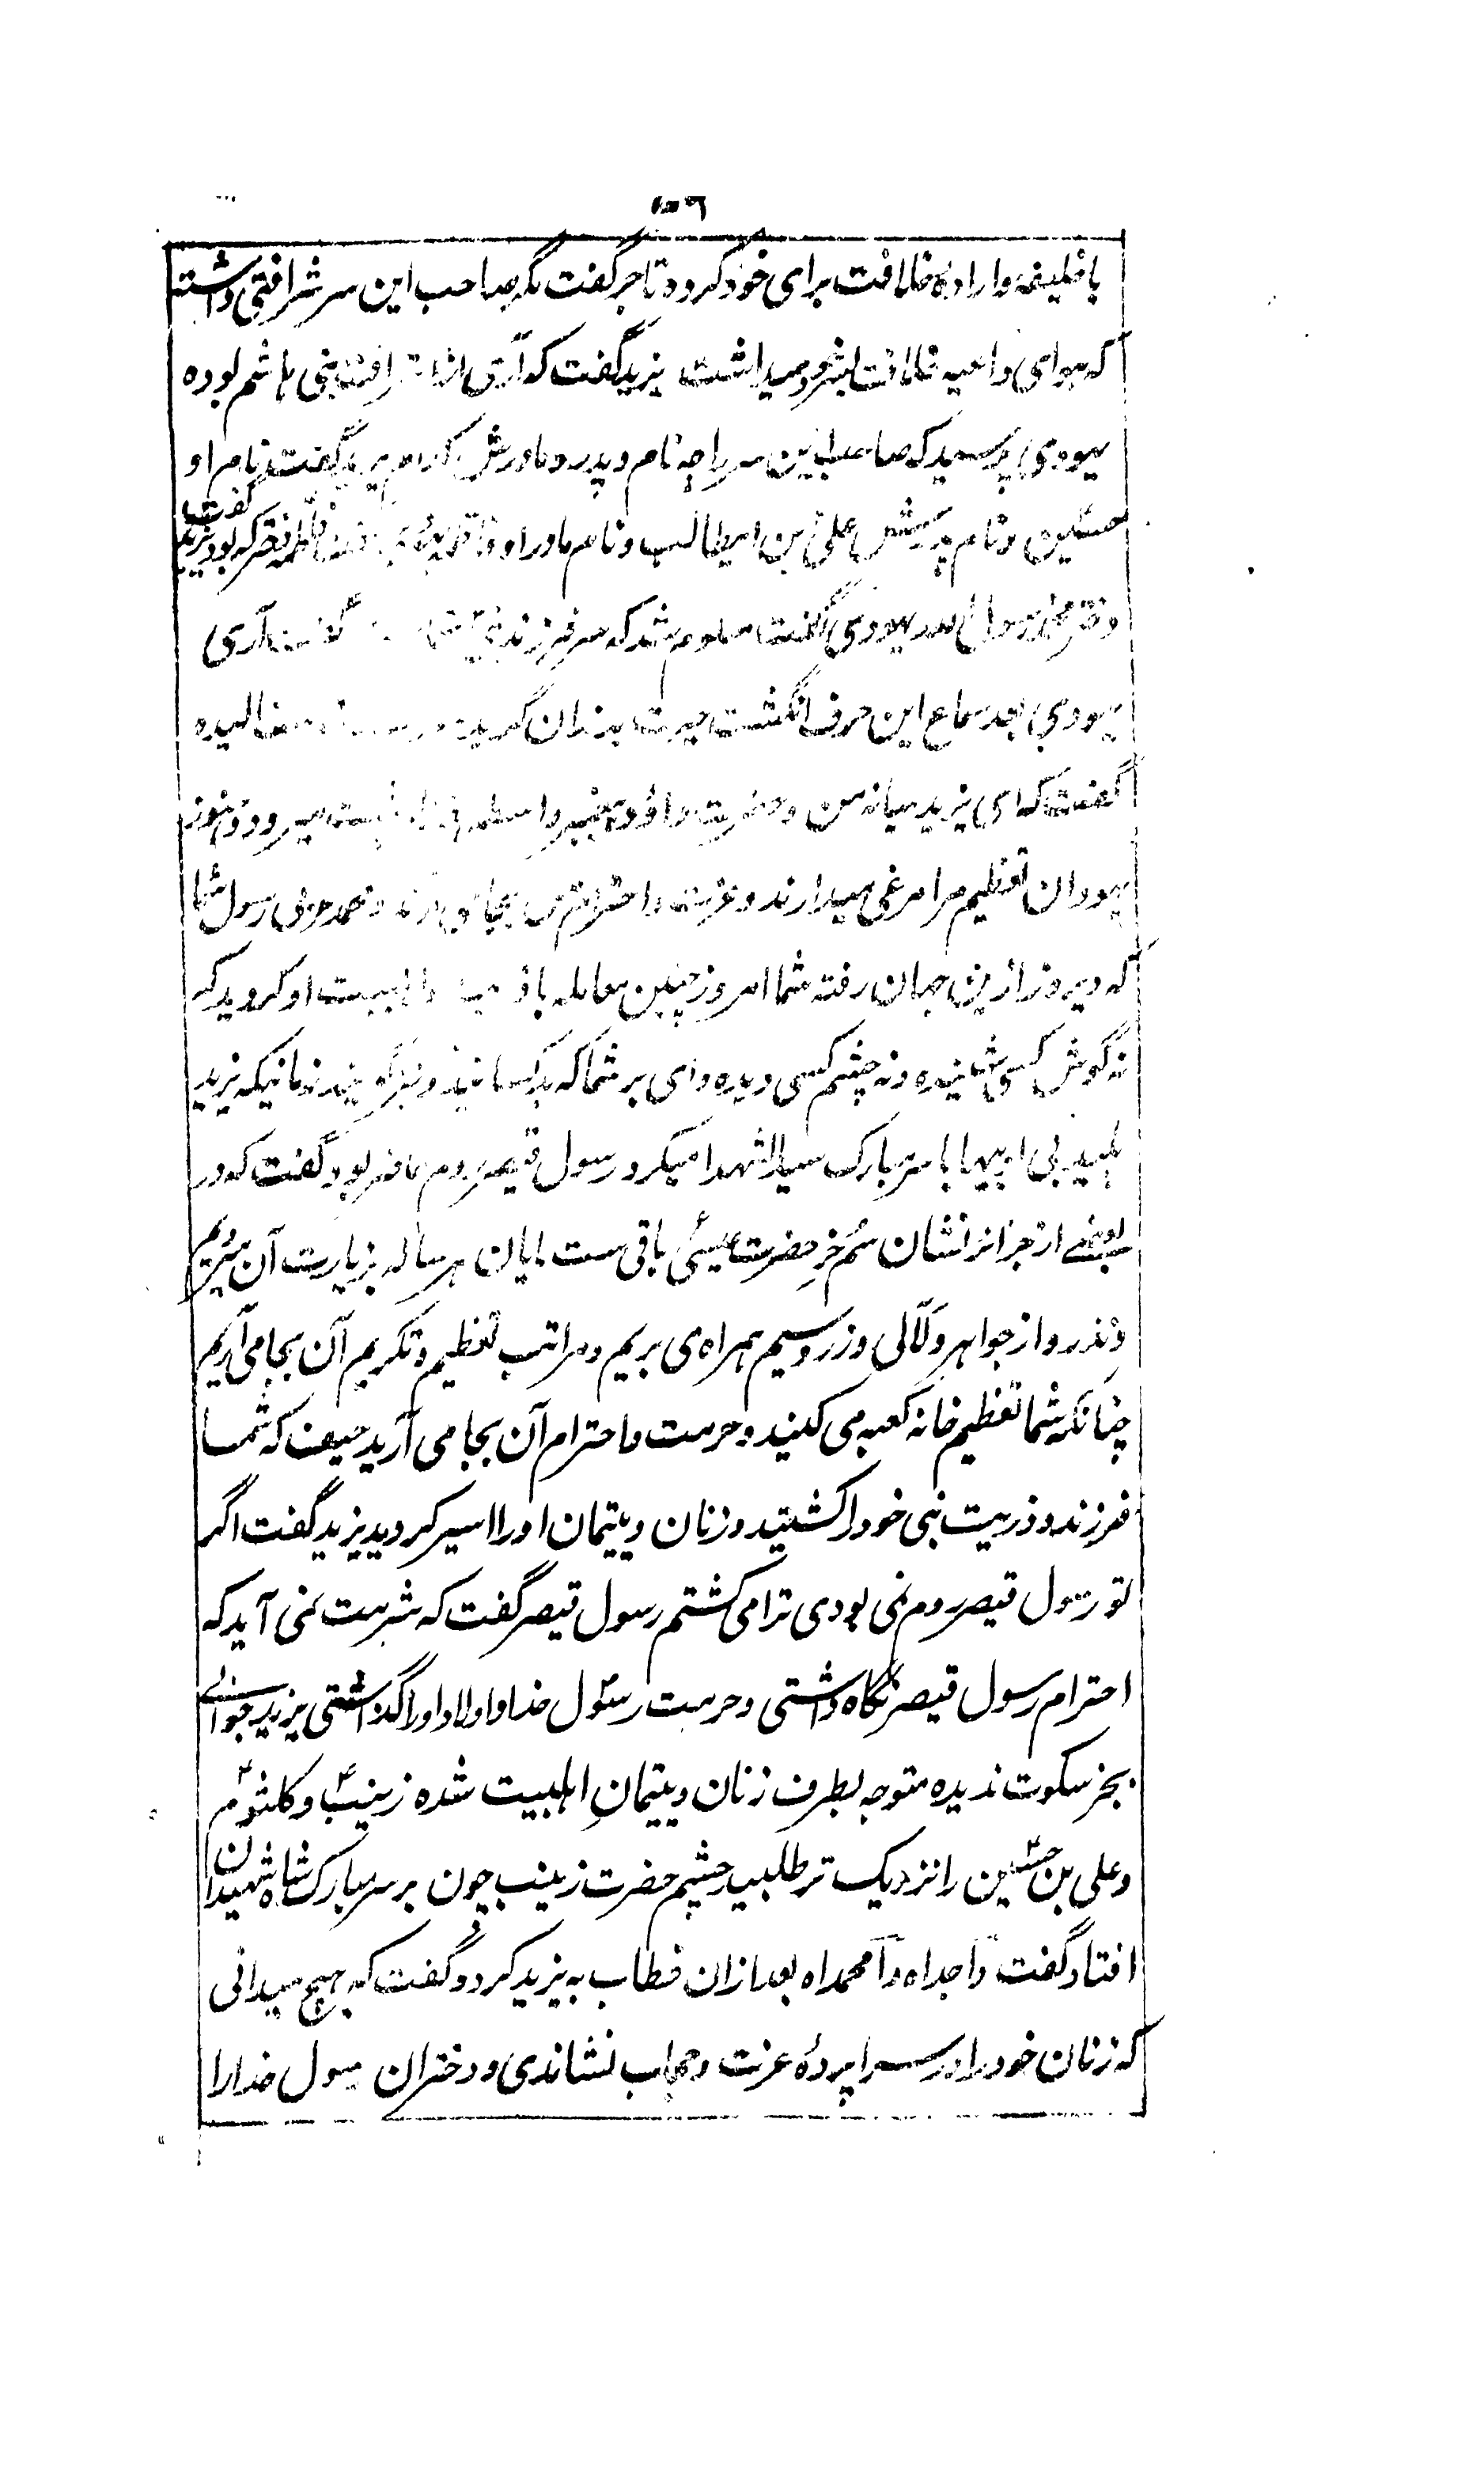 با خلیفه و اراده خلافت برای خود کرد و تاجر گفت مگر صاحب این سر شرافتی داشته
که هوای داعیه خلافت میداشت یزید گفت که آری از شرافت بنی هاشم بوده
یهودی پرسید که صاحب این سر را چه نام و پدر و مادرش کدام یزید گفت نام او
حسین و نام پدرش علی بن ابیطالب و نام مادر او فاطمه گفت فاطمه دختر که بود یزید گفت
دختر محمد رسول الله یهودی گفت معلوم شد که سر فرزند گفت آری
یهودی بعد سماع این حرف انگشت حیرت بدندان
گفت که ای یزید میانه من و حضرت داؤد پیغمبر واسطه میرود و هنوز
یهودان تعظیم مرا مرعی میدارند و عزت و احترام من بجا می آرند و محمد عربی رسول شما
که دیروز ازین جهان رفته شما امروز چنین معامله با اهلبیت او کردید که
نه گوش کسی شنیده و نه چشم کسی دیده وای بر شما که بد کسانید زمانیکه یزید
پلید بی ادبیها با سر مبارک سید الشهدا میکرد رسول قیصر روم حاضر بود گفت که در
بعضے از جزائر نشان سُم خرِ حضرت عیسیٰ باقی ست مایان هر ساله بزیارت آن میرویم
و نذر و از جواهر و لآلی و زر و سیم همراه می بریم و مراتب تعظیم و تکریم آن بجا می آریم
چنانکه شما تعظیم خانه کعبه می کنید و حرمت و احترام آن بجا می آرید حیف که شما
فرزند و ذریت نبی خود را کشتید و زنان و یتیمان او را اسیر کردید یزید گفت اگر
تو رسول قیصر روم نمی بودی ترا می کشتم رسول قیصر گفت که شرمت نمی آید که
احترام رسول قیصر نگاه داشتی و حرمت رسول خدا و اولاد او را گذاشتی یزید جوابے
بجز سکوت ندیده متوجه بطرف زنان و یتیمانِ اہلبیت شده زینب و کلثوم
و علی بن حسین را نزدیک تر طلبید چشم حضرت زینب چون بر سر مبارک شاه شهیدان
افتاد گفت وا جداه وا محمداه بعد ازان خطاب به یزید کرد و گفت که هیچ میدانی
که زنان خود را در سراپردهٔ عزت و حجاب نشاندی و دختران رسول خدا را